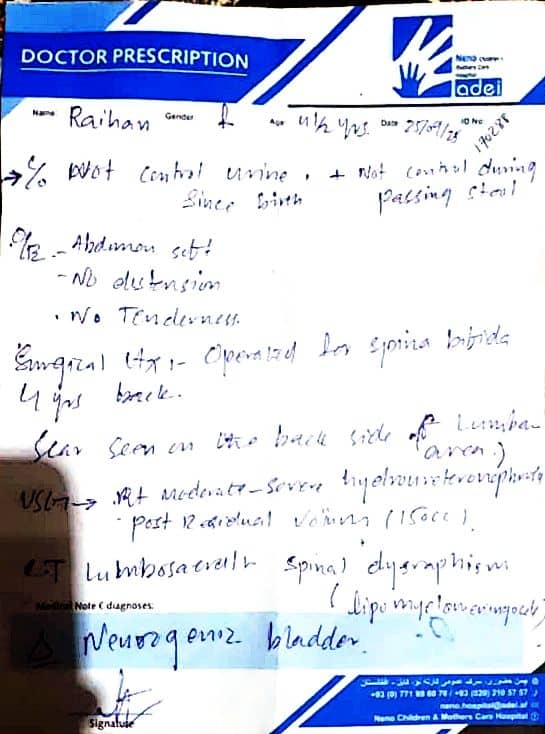 DOCTOR PRESCRIPTION
Neno Children &
Mothers Care
Hospital
adei
Name Raihan Gender f Age 4 1/2 yrs Date 25/09/25 ID No 170288
→ C/o Not control urine, + Not control during
since birth passing stool
O/E - Abdomen soft
- No distension
• No Tenderness.
Surgical Hx :- Operated for spina bifida
4 yrs back.
Scar seen on the back side of Lumbar
area.)
USG → Rt moderate-severe hydroureteronephrosis
- post Residual Volum (150cc).
CT Lumbosacral spinal dysraphism
(lipomyelomeningocele)
Medical Note & diagnoses:
Δ Neurogenic bladder.
Signature
+93 (0) 771 89 60 76 / +93 (020) 210 57 57
neno.hospital@adei.af
Neno Children & Mothers Care Hospital